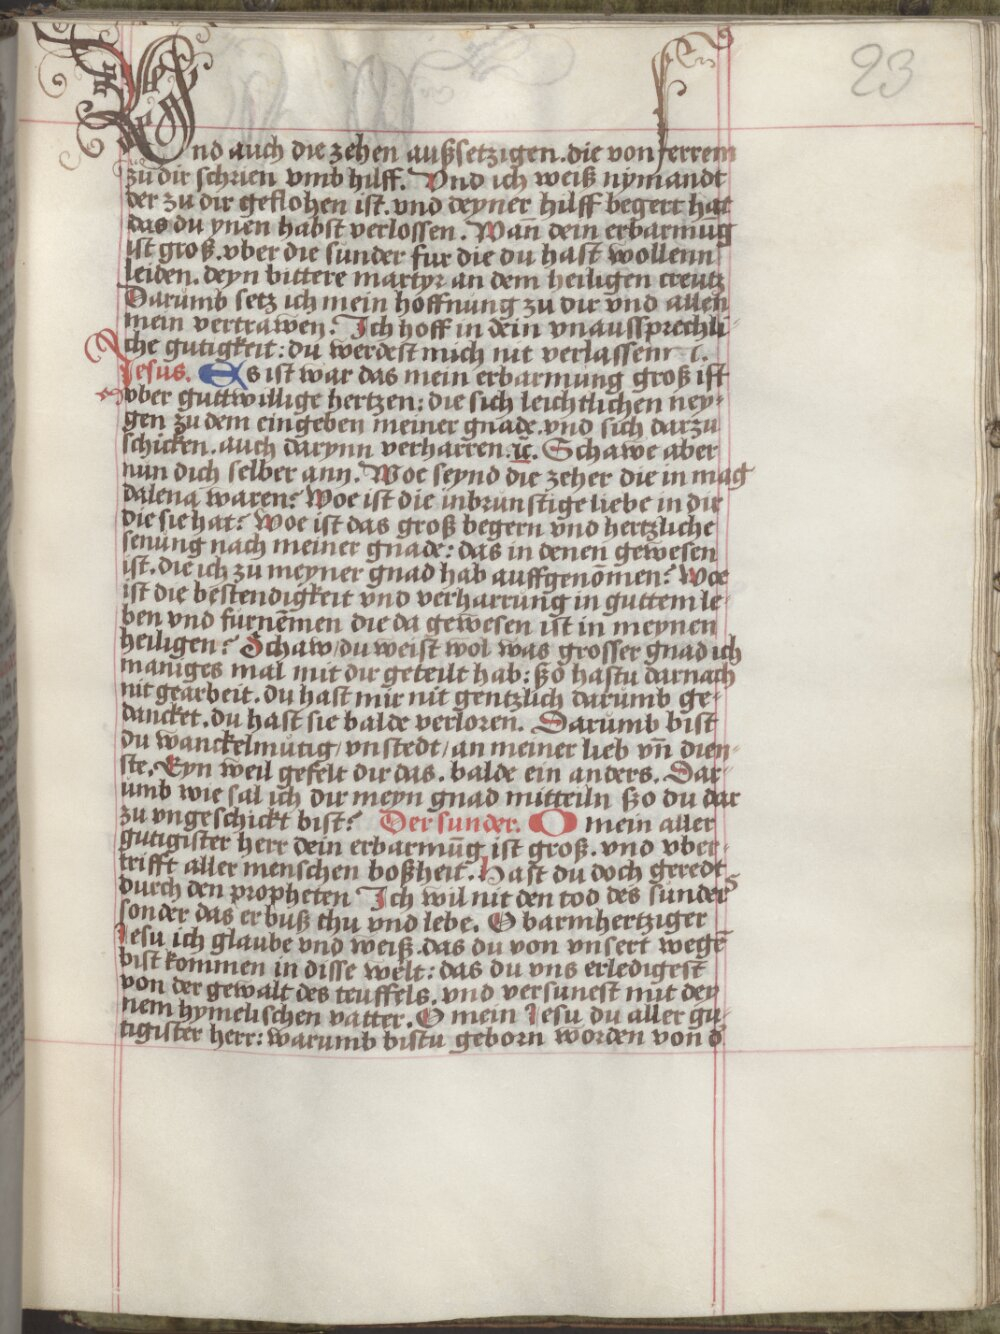 23
Vnd auch die zehen außsetzigen. die von ferrem
zu dir schrien vmb hilff. Vnd ich weiß nymandt
der zu dir geflohen ist. vnd deyner hilff begert hat
das du ynen habst verlossen. Wañ dein erbarmūg
ist groß. vber die sunder fur die du hast wollenn
leiden. deyn bittere martyr an dem heiligen creutz
Darumb setz ich mein hoffnung zu dir vnd allen
mein vertrawen. Ich hoff in dein vnaussprechli-
che gutigkeit: du werdest mich nit verlassenn
Jesus. Es ist war das mein erbarmung groß ist
vber guttwillige hertzen: die sich leichtlichen ney-
gen zu dem eingeben meiner gnade. vnd sich darzu
schicken. auch darynn verharren. ꝛc̄. Schawe aber
nun dich selber ann. Woe seynd die zeher die in mag
dalena waren? Woe ist die inbrunstige liebe in dir
die sie hat? Woe ist das groß begern vnd hertzliche
senung nach meiner gnade: das in denen gewesen
ist. die ich zu meyner gnad hab auffgenōmen? Woe
ist die bestendigkeit vnd verharrung in guttem le-
ben vnd furnēmen die da gewesen ist in meynen
heiligen? Schaw/ du weist wol was grosser gnad ich
maniges mal mit dir geteilt hab: ßo hastu darnach
nit gearbeit. du hast mir nit gentzlich darumb ge-
dancket. du hast sie balde verloren. Darumb bist
du wanckelmutig/ vnstedt/ an meiner lieb vñ dien-
ste. Eyn weil gefelt dir das. balde ein anders. Dar-
umb wie sal ich dir meyn gnad mitteiln ßo du dar
zu vngeschickt bist? Der sunder. O mein aller
gutigister herr dein erbarmūg ist groß. vnd vber-
trifft aller menschen boßheit. Hast du doch geredt
durch den propheten Ich wil nit den tod des sunders
sonder das er buß thu vnd lebe. O barmhertziger
Jesu ich glaube vnd weiß. das du von vnsert wegē
bist kommen in disse welt: das du vns erledigest
von der gewalt des teuffels. vnd versunest mit dey
nem hymelischen vatter. O mein Jesu du aller gu-
tigister herr: warumb bistu geborn worden von d̄